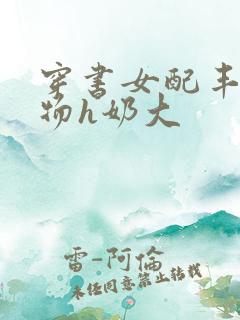 穿书女配丰
物h奶大
雷-阿倫
未经同意禁止转载